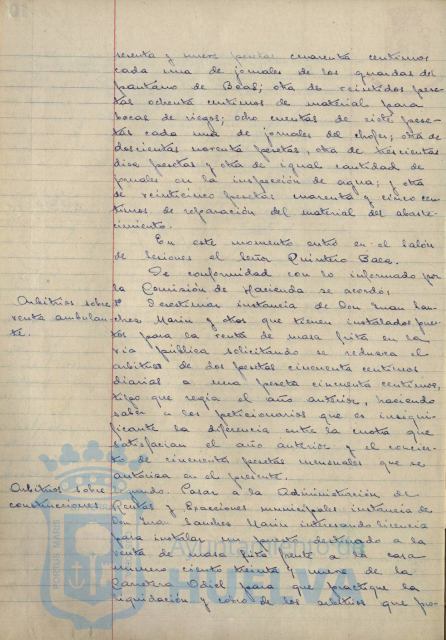 senta y nueve pesetas cuarenta centimos
cada una de jornales de los guardas del
pantano de Beas; otra de veintidos pese-
tas ochenta centimos de material para
bocas de riegos; ocho cuentas de siete pese-
tas cada una de jornales del chofer, otra de
doscientas noventa pesetas, otra de trescientas
doce pesetas y otra de igual cantidad de
jornales en la inspección de agua; y otra
de veinticinco pesetas cuarenta y cinco cen-
timos de reparación del material del abaste-
cimiento.
En este momento entró en el salón
de sesiones el Señor Quintero Baca.
De conformidad con lo informado por
la Comisión de Hacienda se acordó:
Arbitrios sobre
venta ambulan-
te.
1º Desestimar instancia de Don Juan San-
chez Marin y otros que tienen instalados pues-
tos para la venta de masa frita en la
via pública solicitando se reduzca el
arbitrio de dos pesetas cincuenta centimos
diarias a una peseta cincuenta centimos,
tipo que regia el año anterior, haciendo
saber a los peticionarios que es insigni-
ficante la diferencia entre la cuota que
satisfacian el año anterior y el concier-
to de cincuenta pesetas mensuales que se
autoriza en el presente.
Arbitrios sobre
construcciones.
Segundo. Pasar a la Administración de
Rentas y Exacciones municipales instancia de
Don Juan Sanchez Marin interesando licencia
para instalar un puesto destinado a la
venta de masa frita frente a la casa
número ciento treinta y nueve de la
Carretera Odiel para que practique la
liquidación y cobro de los arbitrios que pro-
Ayuntamiento de
HUELVA
PORTUS MARIS